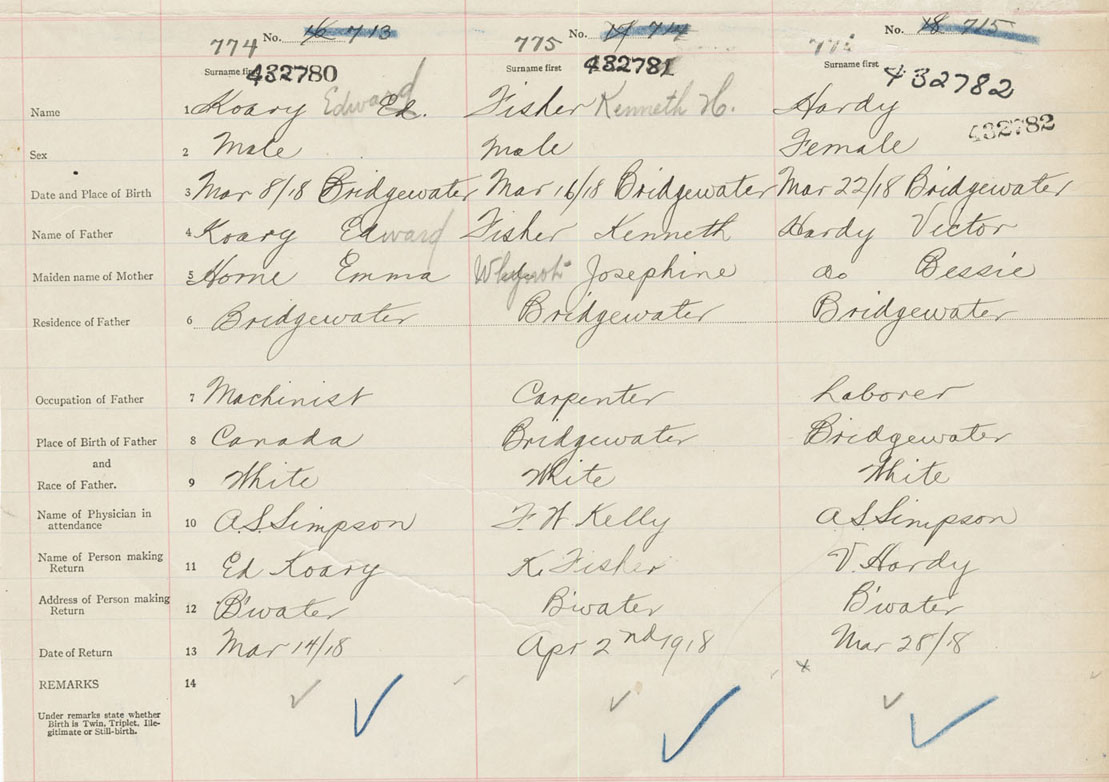 No. 16 713 No. 17 714 No. 18 715
774 775
Surname first 432780 Surname first 432781 Surname first 432782
Name 1 Koary Edward Ed. Fisher Kenneth H. Hardy
432782
Sex 2 Male Male Female
Date and Place of Birth 3 Mar 8/18 Bridgewater Mar 16/18 Bridgewater Mar 22/18 Bridgewater
Name of Father 4 Koary Edward Fisher Kenneth Hardy Victor
Maiden name of Mother 5 Horne Emma Whynot Josephine do Bessie
Residence of Father 6 Bridgewater Bridgewater Bridgewater
Occupation of Father 7 Machinist Carpenter Laborer
Place of Birth of Father 8 Canada Bridgewater Bridgewater
and
Race of Father. 9 White White White
Name of Physician in
attendance 10 A.S. Simpson F W Kelly A.S. Simpson
Name of Person making
Return 11 Ed Koary K. Fisher V. Hardy
Address of Person making
Return 12 B'water B'water B'water
Date of Return 13 Mar 14/18 Apr 2nd 1918 Mar 28/18
REMARKS 14
Under remarks state whether
Birth is Twin, Triplet, Ille-
gitimate or Still-birth.